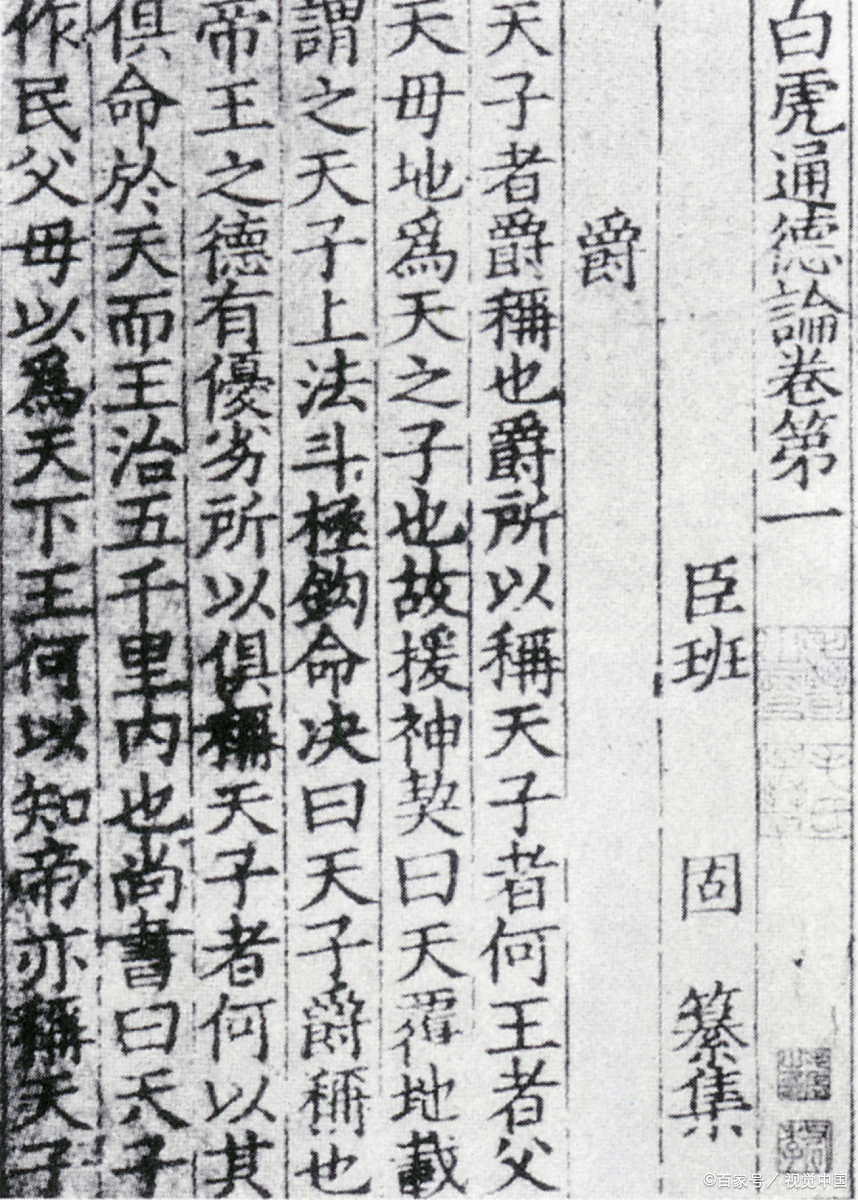 白虎通德論卷第一
臣班　固　纂集
爵
天子者爵稱也爵所以稱天子者何王者父
天毋地爲天之子也故援神契曰天覆地載
謂之天子上法斗極鈎命决曰天子爵稱也
帝王之德有優劣所以俱稱天子者何以其
俱命於天而王治五千里内也尚書曰天子
作民父毋以爲天下王何以知帝亦稱天子
©百家号／视觉中国